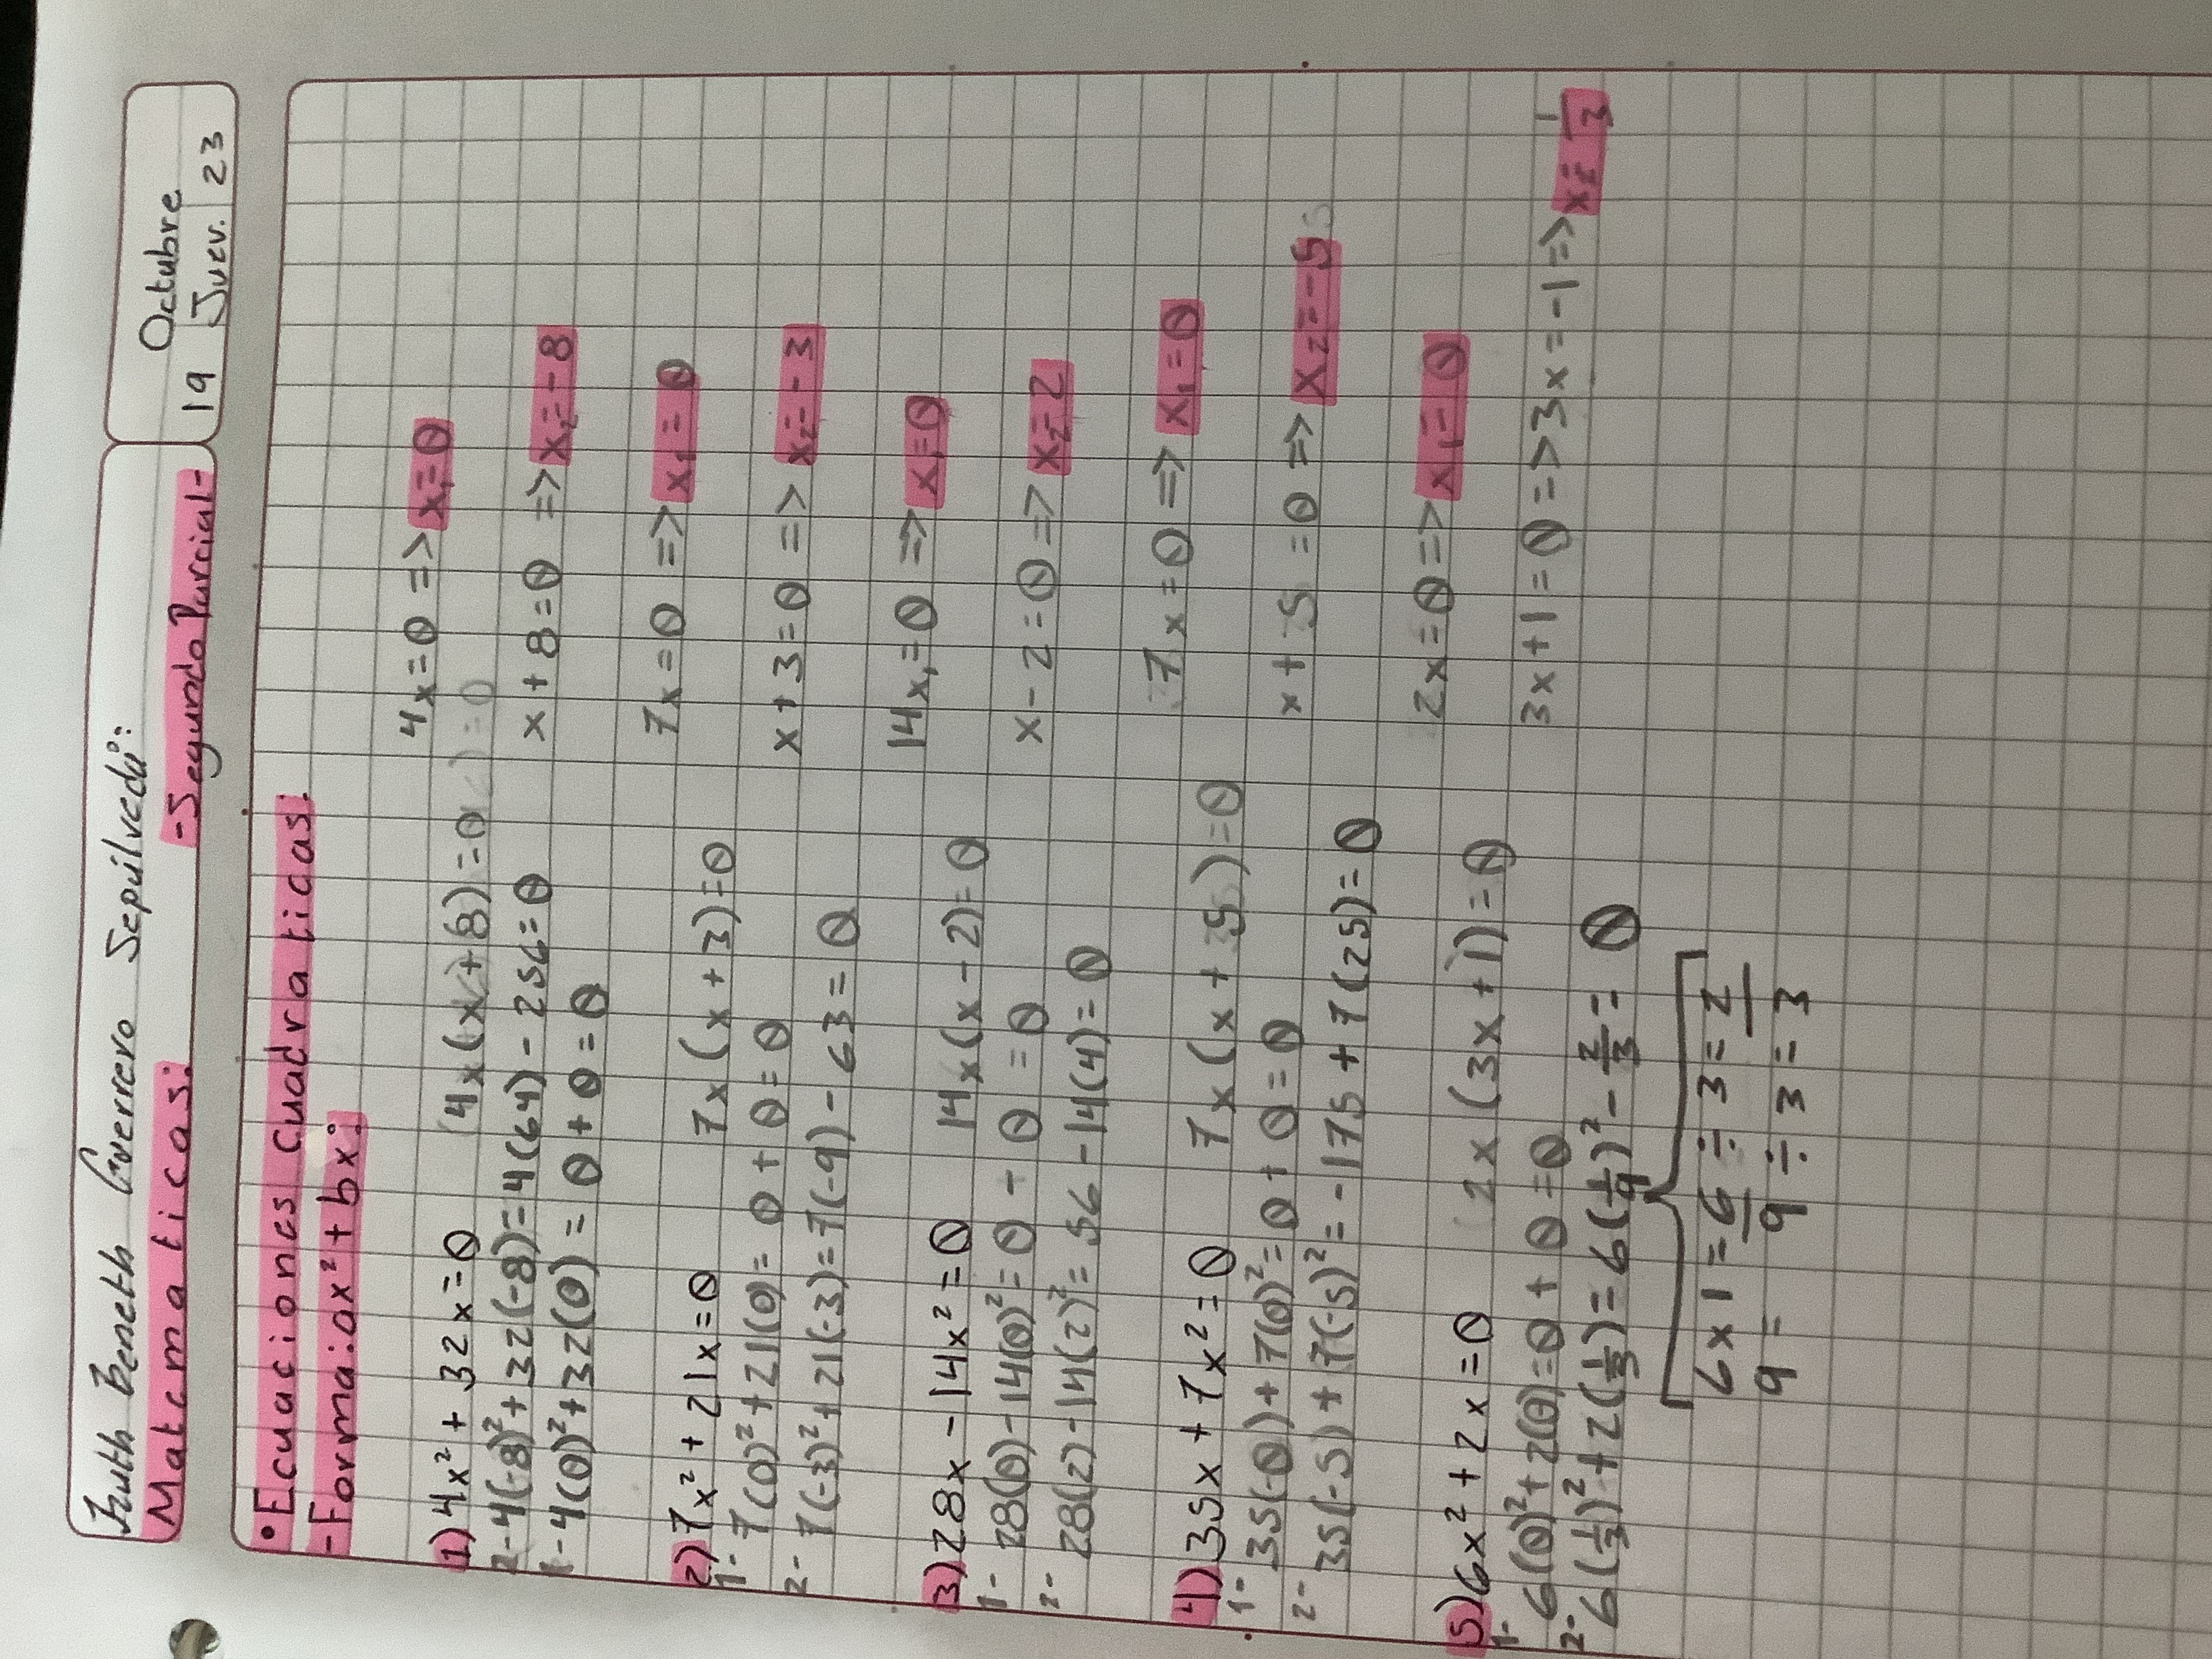 Beneth Guerrero Sepúlveda:
Octubre
19 Juev. 23
Matematicas:
-Segundo Parcial-
•Ecuaciones cuadraticas:
-Forma: ax² + bx:
1) 4x² + 32x=0 4x(x+8)=0 4x=0 => x₁=0
2- 4(-8)²+32(-8)=4(64)-256=0 x+8=0 => x₂=-8
1- 4(0)²+32(0) = 0+0=0
2) 7x²+21x=0 7x(x+3)=0 7x=0 => x₁=0
1- 7(0)²+21(0)= 0+0=0 x+3=0 => x₂=-3
2- 7(-3)²+21(-3)=7(-9)-63=0
3) 28x-14x²=0 14x(x-2)=0 14x₁=0 => x₁=0
1- 28(0)-14(0)²=0-0=0 x-2=0 => x₂=2
2- 28(2)-14(2)²= 56-14(4)=0
4) 35x+7x²=0 7x(x+5)=0 7x=0 => x₁=0
1- 35(-0)+7(0)²=0+0=0 x+5=0 => x₂=-5
2- 35(-5)+7(-5)²=-175+7(25)=0
5) 6x²+2x=0 2x(3x+1)=0 2x=0 => x₁=0
1- 6(0)²+2(0)=0+0=0 3x+1=0 => 3x=-1 => x₂=1/3
2- 6(1/3)²+2(1/3)=6(1/9)²-2/3=0
6x1=6÷3=2
9= 9÷3=3